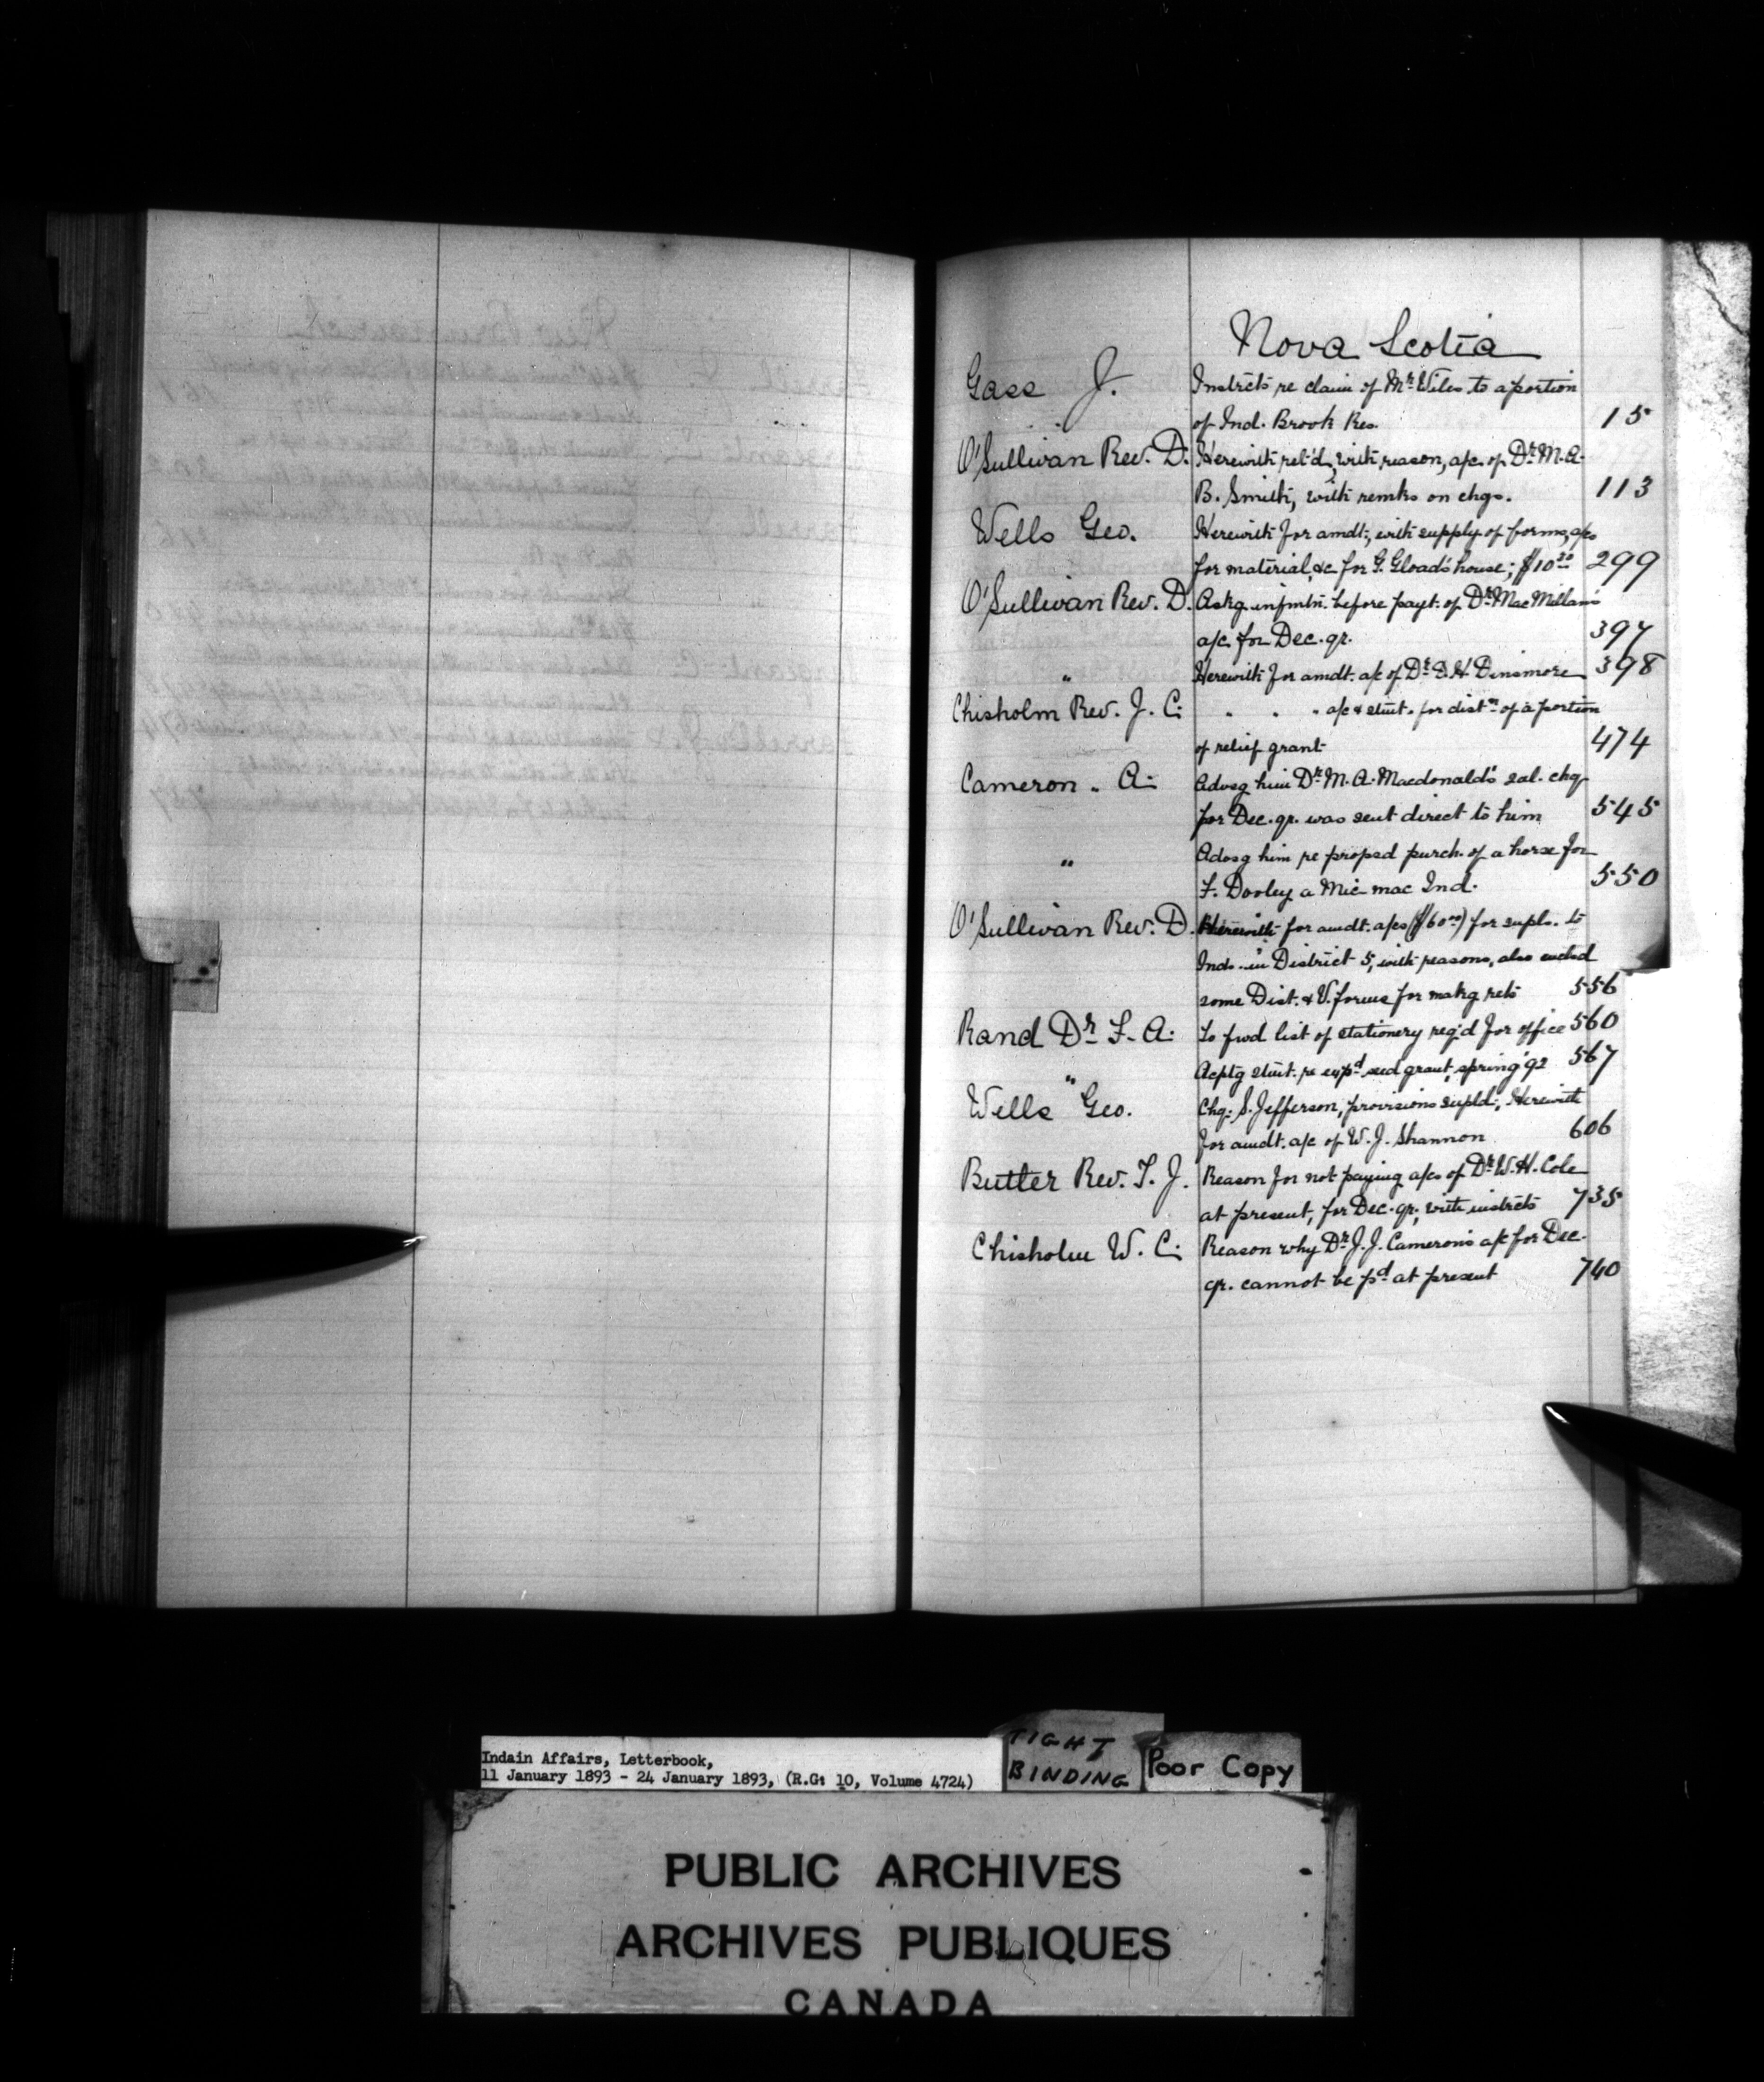 Nova Scotia
Gass J. Instrcts re claim of Mr. Wiles to a portion
of Ind. Brook Res. 15
O'Sullivan Rev. D. Herewith ret'd, with reason, a/c. of Dr. M. A.
B. Smith, with remks on chgs. 113
Wells Geo. Herewith for amdt., with supply of forms, a/cs
for material, &c for G. Gload's house; $10 299
O'Sullivan Rev. D. Askg infmtn. before payt. of Dr. MacMillan's
a/c for Dec. qr. 397
" Herewith for amdt. a/c of Dr. D. H Dinsmore 398
Chisholm Rev. J. C. " " " a/c & stmt. for distn. of a portion
of relief grant 474
Cameron " A. Advsg him Dr. M. A. Macdonald's sal. chq
for Dec. qr. was sent direct to him 545
" Advsg him re propsd purch. of a horse for
F. Dooley a Mic mac Ind. 550
O'Sullivan Rev. D. Herewith for amdt. a/cs ($60.00) for supls. to
Inds. in District 5, with reasons, also encled
some Dist. & V. forms for makg rets 556
Rand Dr. F. A. To fwd list of stationery req'd for office 560
" Acptg stmt. re exp'd seed grant, spring '92 567
Wells Geo. Chq: S. Jefferson, provisions supld; Herewith
for amdt. a/c of W. J. Shannon 606
Butler Rev. T. J. Reason for not paying a/cs of Dr. W. H. Cole
at present, for Dec. qr., with instrcts 735
Chisholm W. C. Reason why Dr. J. J. Cameron's a/c for Dec.
qr. cannot be pd at present 740
Indain Affairs, Letterbook,
11 January 1893 - 24 January 1893, (R.G: 10, Volume 4724)
TIGHT
BINDING
Poor Copy
PUBLIC ARCHIVES
ARCHIVES PUBLIQUES
CANADA